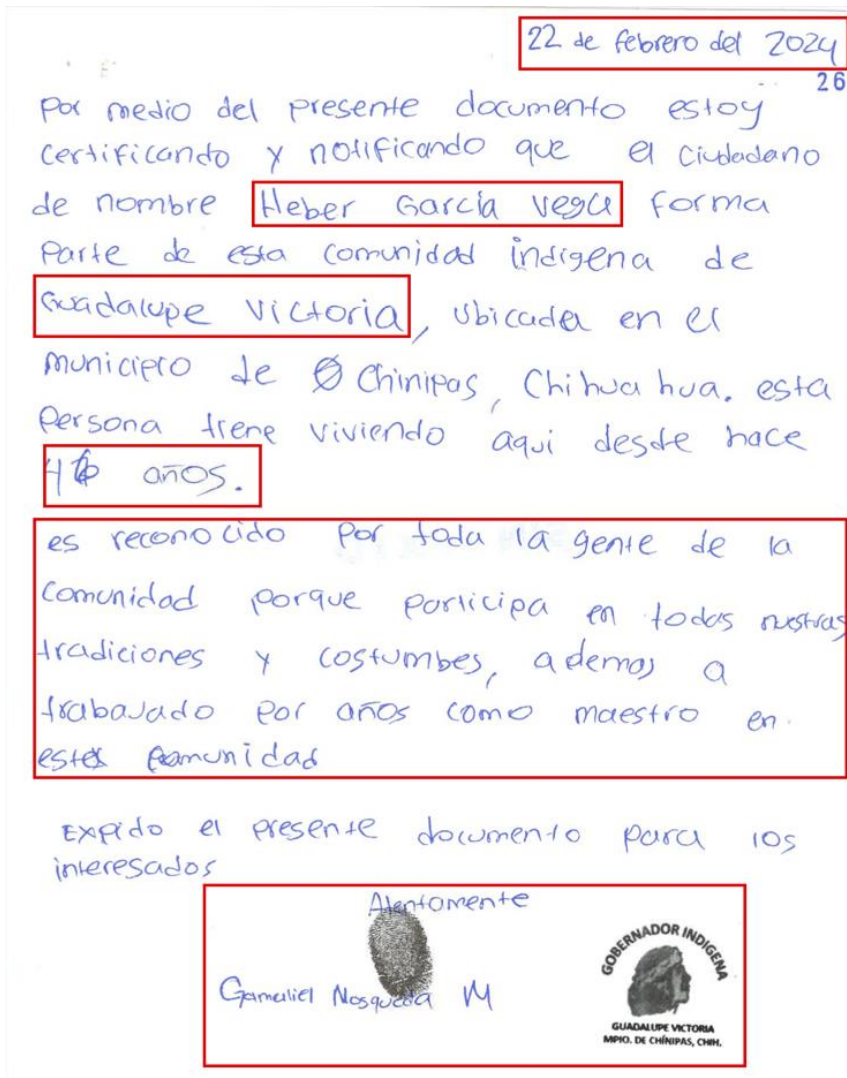 22 de febrero del 2024
26
Por medio del presente documento estoy
certificando y notificando que el ciudadano
de nombre Heber García Vega forma
parte de esta comunidad indigena de
Guadalupe Victoria, ubicada en el
municipio de Chinipas, Chihuahua. esta
Persona tiene viviendo aqui desde hace
años.
es reconocido por toda la gente de la
comunidad porque participa en todas nuestras
tradiciones y costumbes, ademas a
trabajado por años como maestro en
esta comunidad
Expido el presente documento para los
interesados
Atentamente
Gamaliel Mosqueda M
GOBERNADOR INDIGENA
GUADALUPE VICTORIA
MPIO. DE CHÍNIPAS, CHIH.